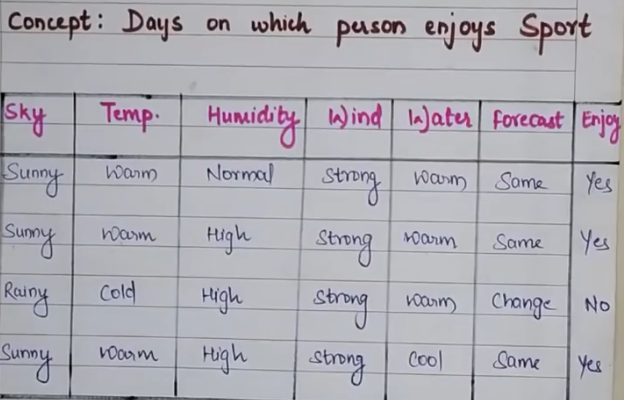 Concept: Days on which person enjoys Sport
Sky Temp. Humidity Wind Water Forecast Enjoy
Sunny Warm Normal Strong Warm Same Yes
Sunny Warm High Strong Warm Same Yes
Rainy Cold High Strong Warm Change No
Sunny Warm High Strong Cool Same Yes